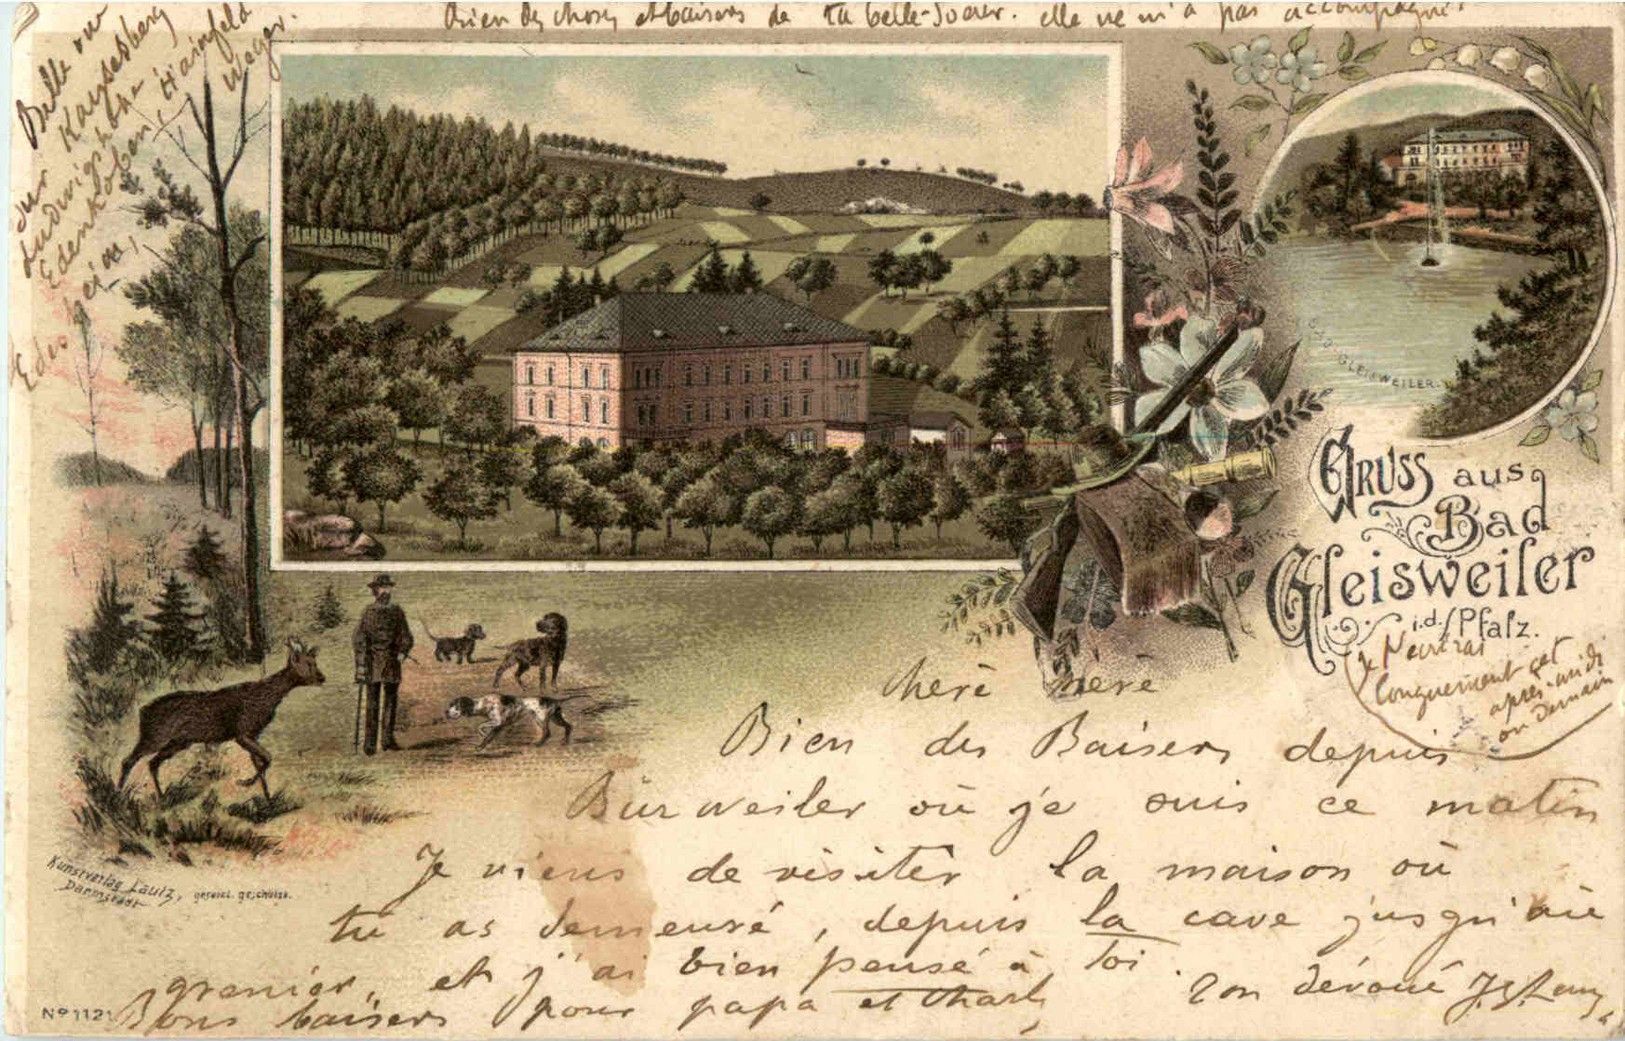 Bien des choses et baisers de ta belle-soeur. elle ne m'a pas accompagné.
Belle vue
sur Kaysersberg
Ludwigshöhe
Edenkoben, Hainfeld
Edesheim, Weyer.
BAD-GLEISWEILER.
GRUSS aus
Bad
Gleisweiler
i.d. Pfalz.
après-midi
ou demain
chère mere
Bien des Baisers depuis
Bürweiler où je suis ce matin
Je viens de visiter la maison où
tu as demeuré, depuis la cave jusqu'au
grenier, et j'ai bien pensé à toi.
Bons baisers pour papa et Charly
Ton dévoué
Kunstverlag Lautz,
Darmstadt
gesetzl. geschützt.
No 1121